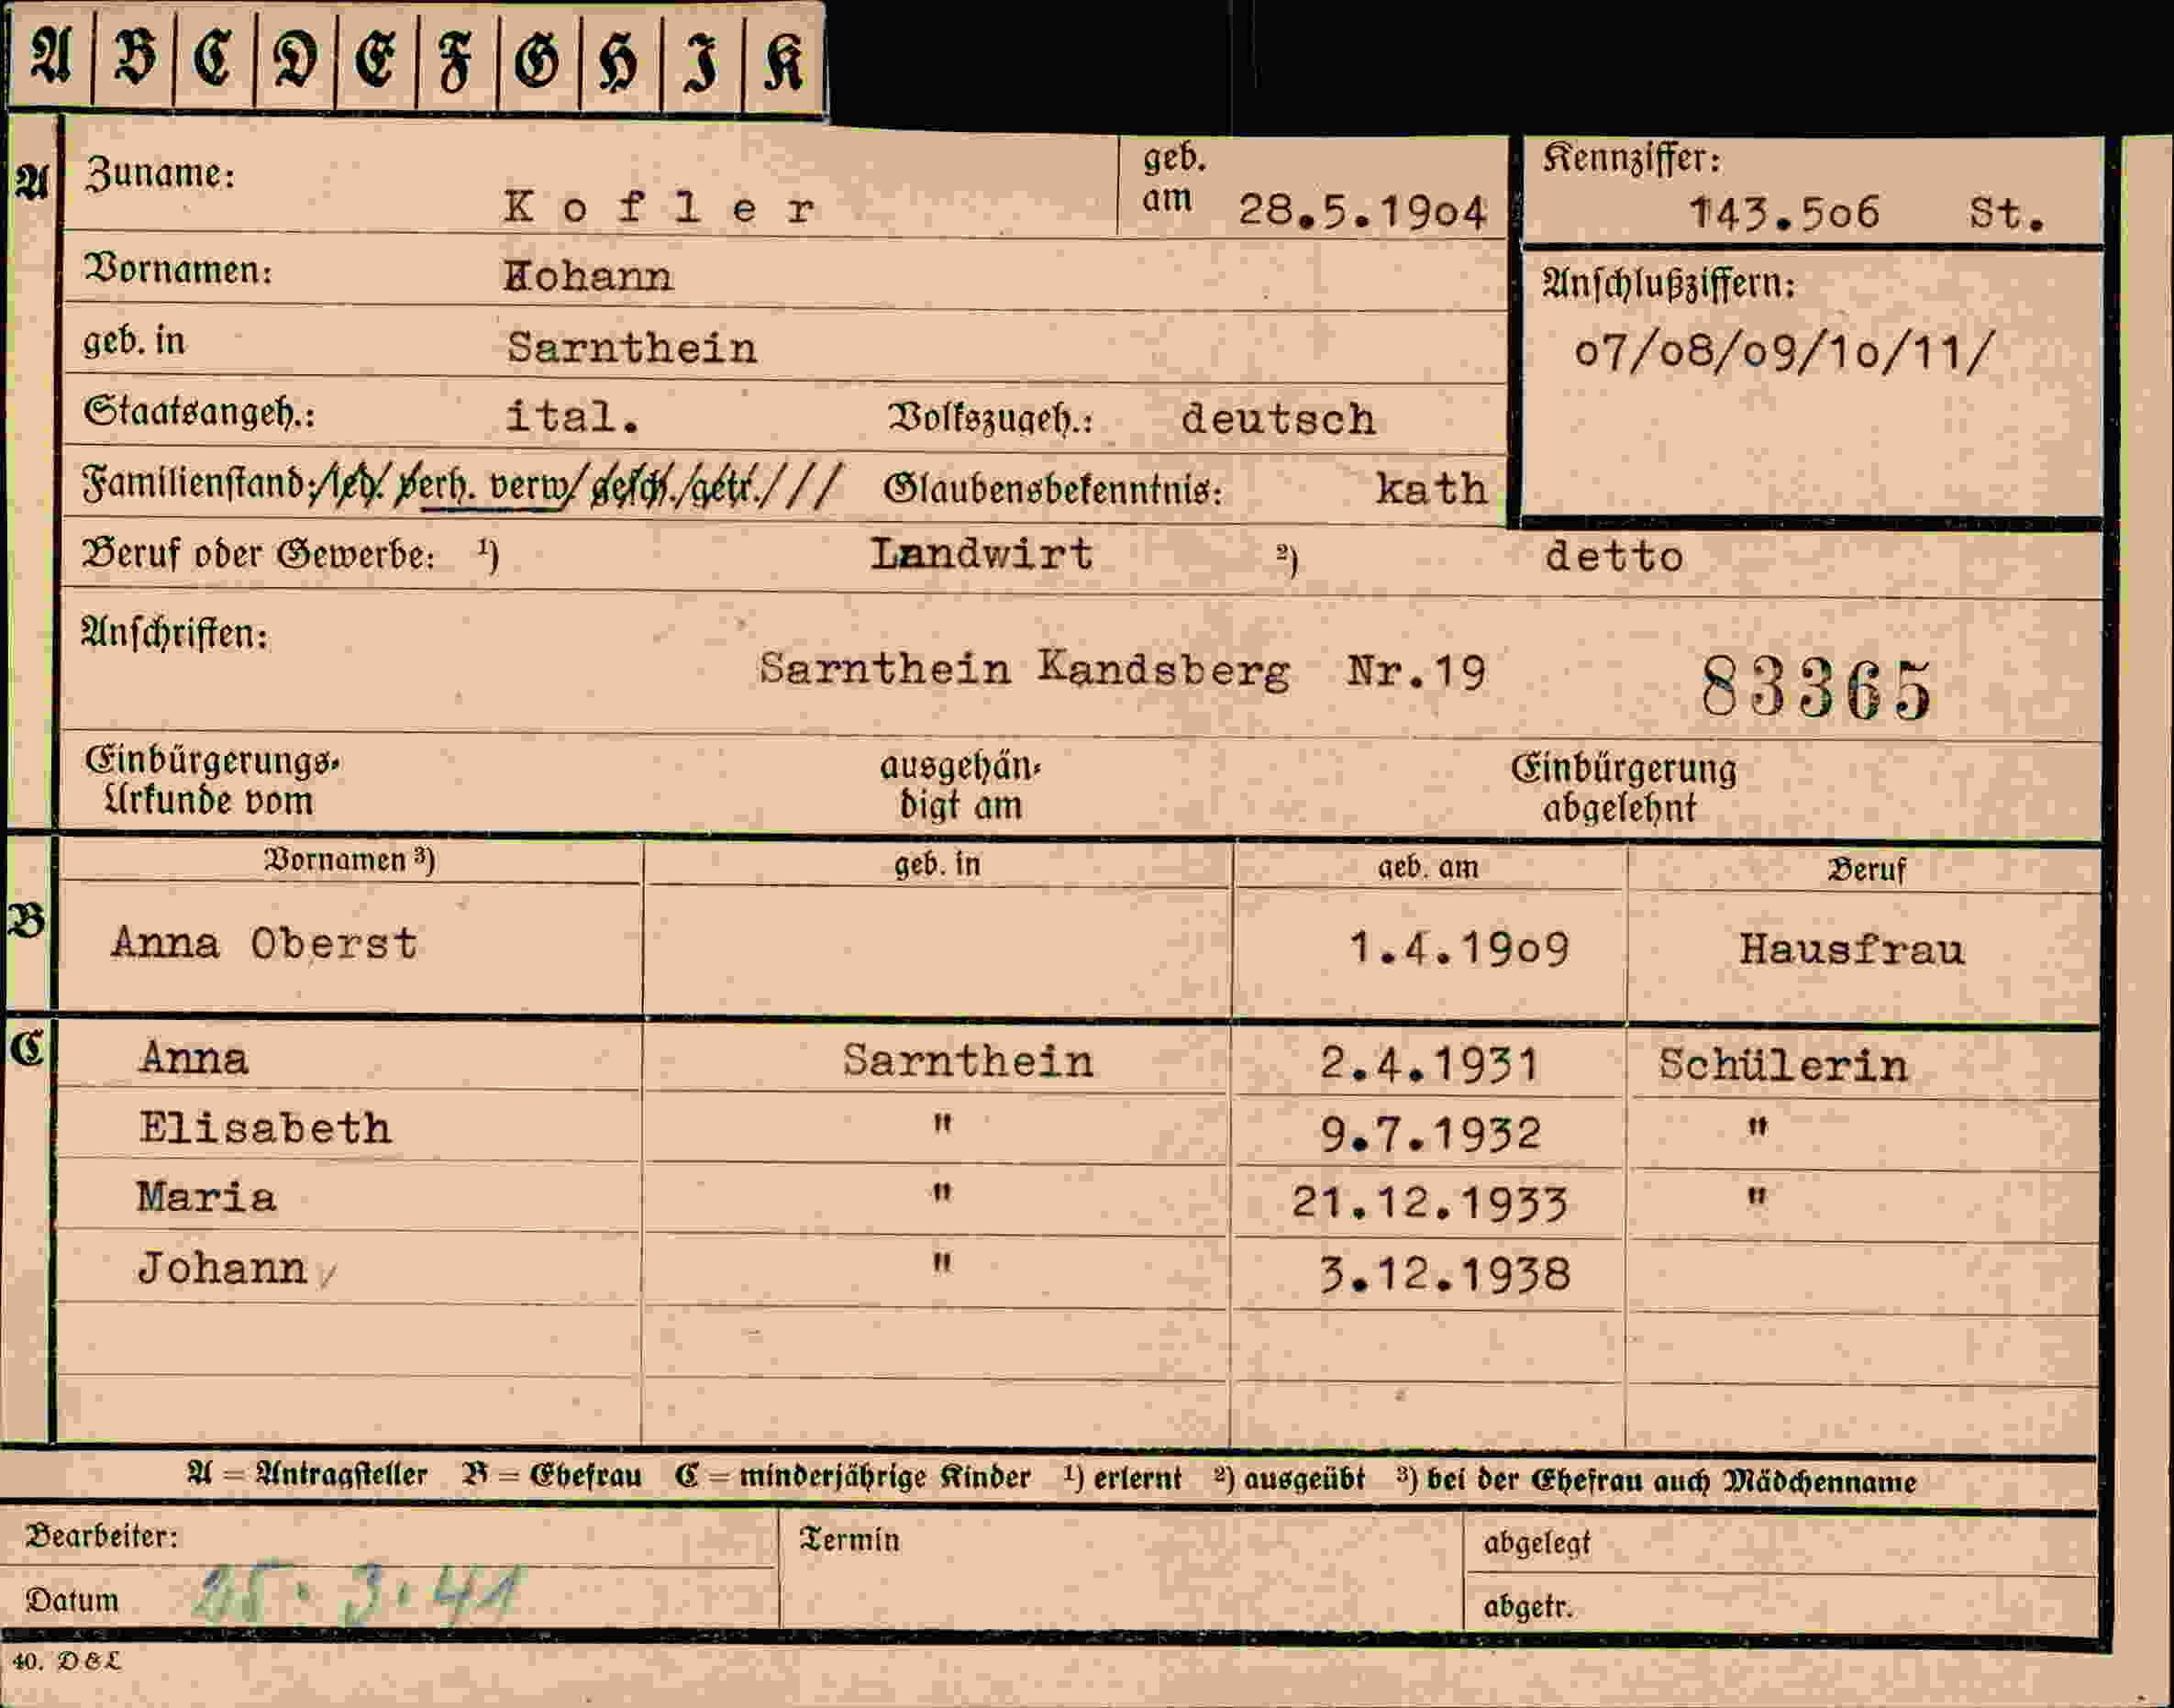 A B C D E F G H I K
A Zuname: K o f l e r geb. am 28.5.19o4 Kennziffer: 143.5o6 St.
Vornamen: Hohann Anschlußziffern:
geb. in Sarnthein o7/o8/o9/1o/11/
Staatsangeh.: ital. Volkszugeh.: deutsch
Familienstand:/led./ verh. verw/ gesch./getr./// Glaubensbekenntnis: kath
Beruf oder Gewerbe: ¹) Landwirt ²) detto
Anschriften: Sarnthein Kandsberg Nr.19 83365
Einbürgerungs- ausgehän- Einbürgerung
Urkunde vom digt am abgelehnt
Vornamen ³) geb. in geb. am Beruf
B Anna Oberst 1.4.19o9 Hausfrau
C Anna Sarnthein 2.4.1931 Schülerin
Elisabeth " 9.7.1932 "
Maria " 21.12.1933 "
Johann " 3.12.1938
A = Antragsteller B = Ehefrau C = minderjährige Kinder ¹) erlernt ²) ausgeübt ³) bei der Ehefrau auch Mädchenname
Bearbeiter: Termin abgelegt
Datum 25. 3. 41 abgetr.
40. D&L